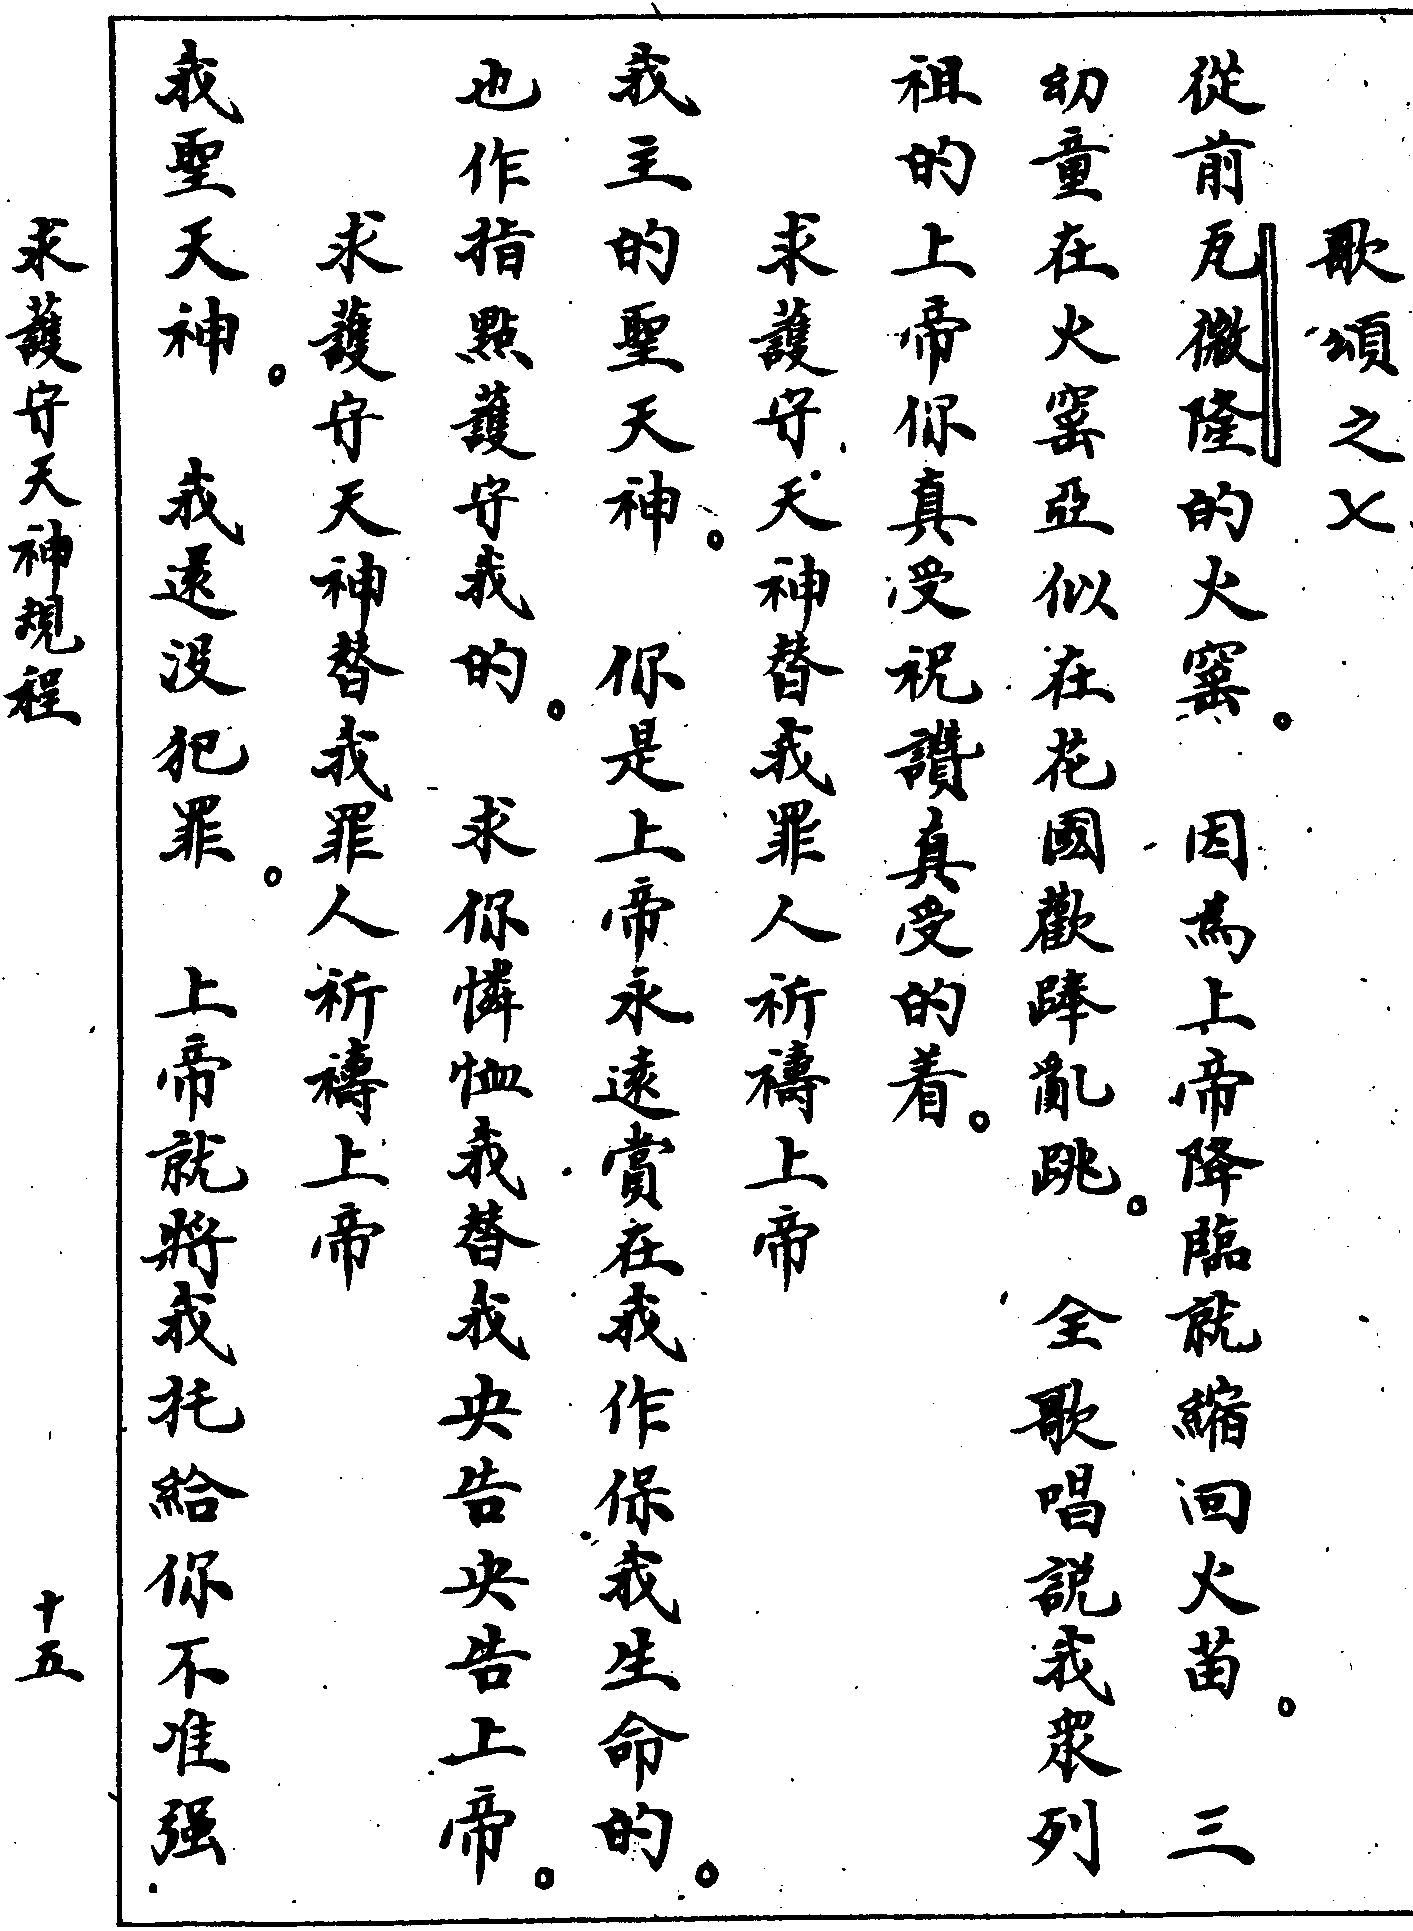 歌頌之七
從前瓦微隆的火窰。因爲上帝降臨就縮回火苗。三
幼童在火窰亞似在花園歡踫亂跳。仝歌唱説我衆列
祖的上帝你真受祝讚真受的着。
求護守天神替我罪人祈禱上帝
我主的聖天神。你是上帝永遠賞在我作保我生命的。
也作指點護守我的。求你憐恤我替我央告央告上帝。
求護守天神替我罪人祈禱上帝
我聖天神。我還没犯罪。上帝就將我托給你不准强
求護守天神規程
十五